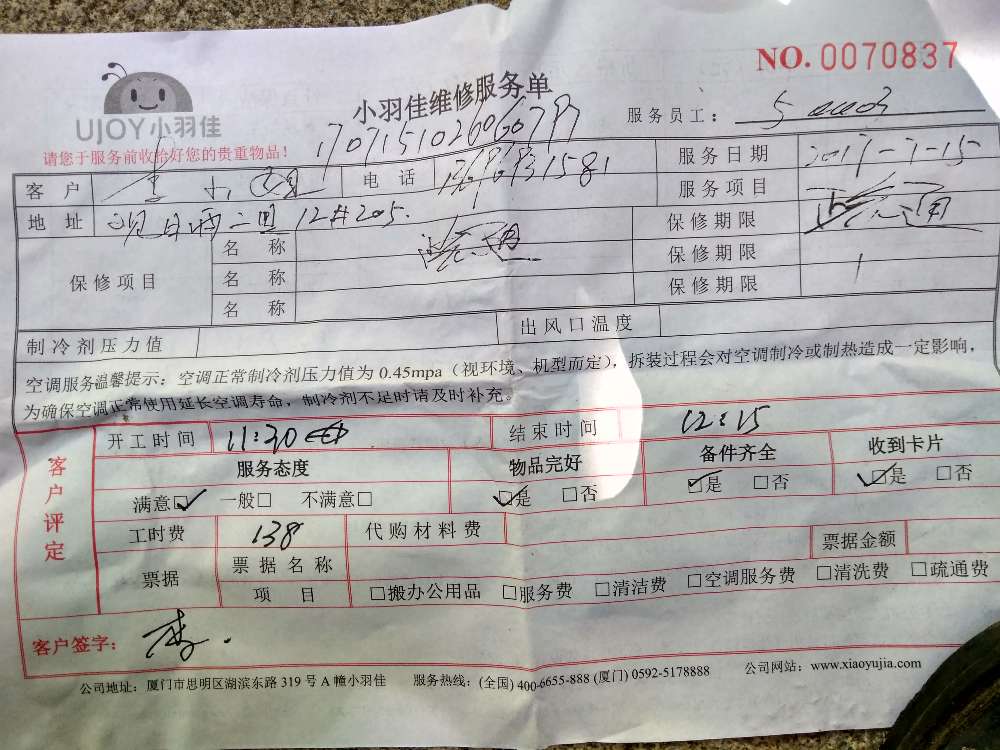 NO. 0070837
UJOY小羽佳
小羽佳维修服务单
服务员工：
请您于服务前收拾好您的贵重物品！
客户 李 电话 服务日期 2017-7-15
地址 12#205. 服务项目
保修项目 名称 保修期限
名称 保修期限
名称 保修期限
制冷剂压力值 出风口温度
空调服务温馨提示：空调正常制冷剂压力值为 0.45mpa（视环境、机型而定），拆装过程会对空调制冷或制热造成一定影响，
为确保空调正常使用延长空调寿命，制冷剂不足时请及时补充。
客户评定
开工时间 11:30 结束时间 12:15
服务态度 物品完好 备件齐全 收到卡片
满意☑ 一般□ 不满意□ ☑是 □否 ☑是 □否 ☑是 □否
工时费 138 代购材料费
票据 票据名称 票据金额
项目 □搬办公用品 □服务费 □清洁费 □空调服务费 □清洗费 □疏通费
客户签字： 李.
公司地址：厦门市思明区湖滨东路 319 号 A 幢小羽佳 服务热线：(全国) 400-6655-888 (厦门) 0592-5178888 公司网站：www.xiaoyujia.com